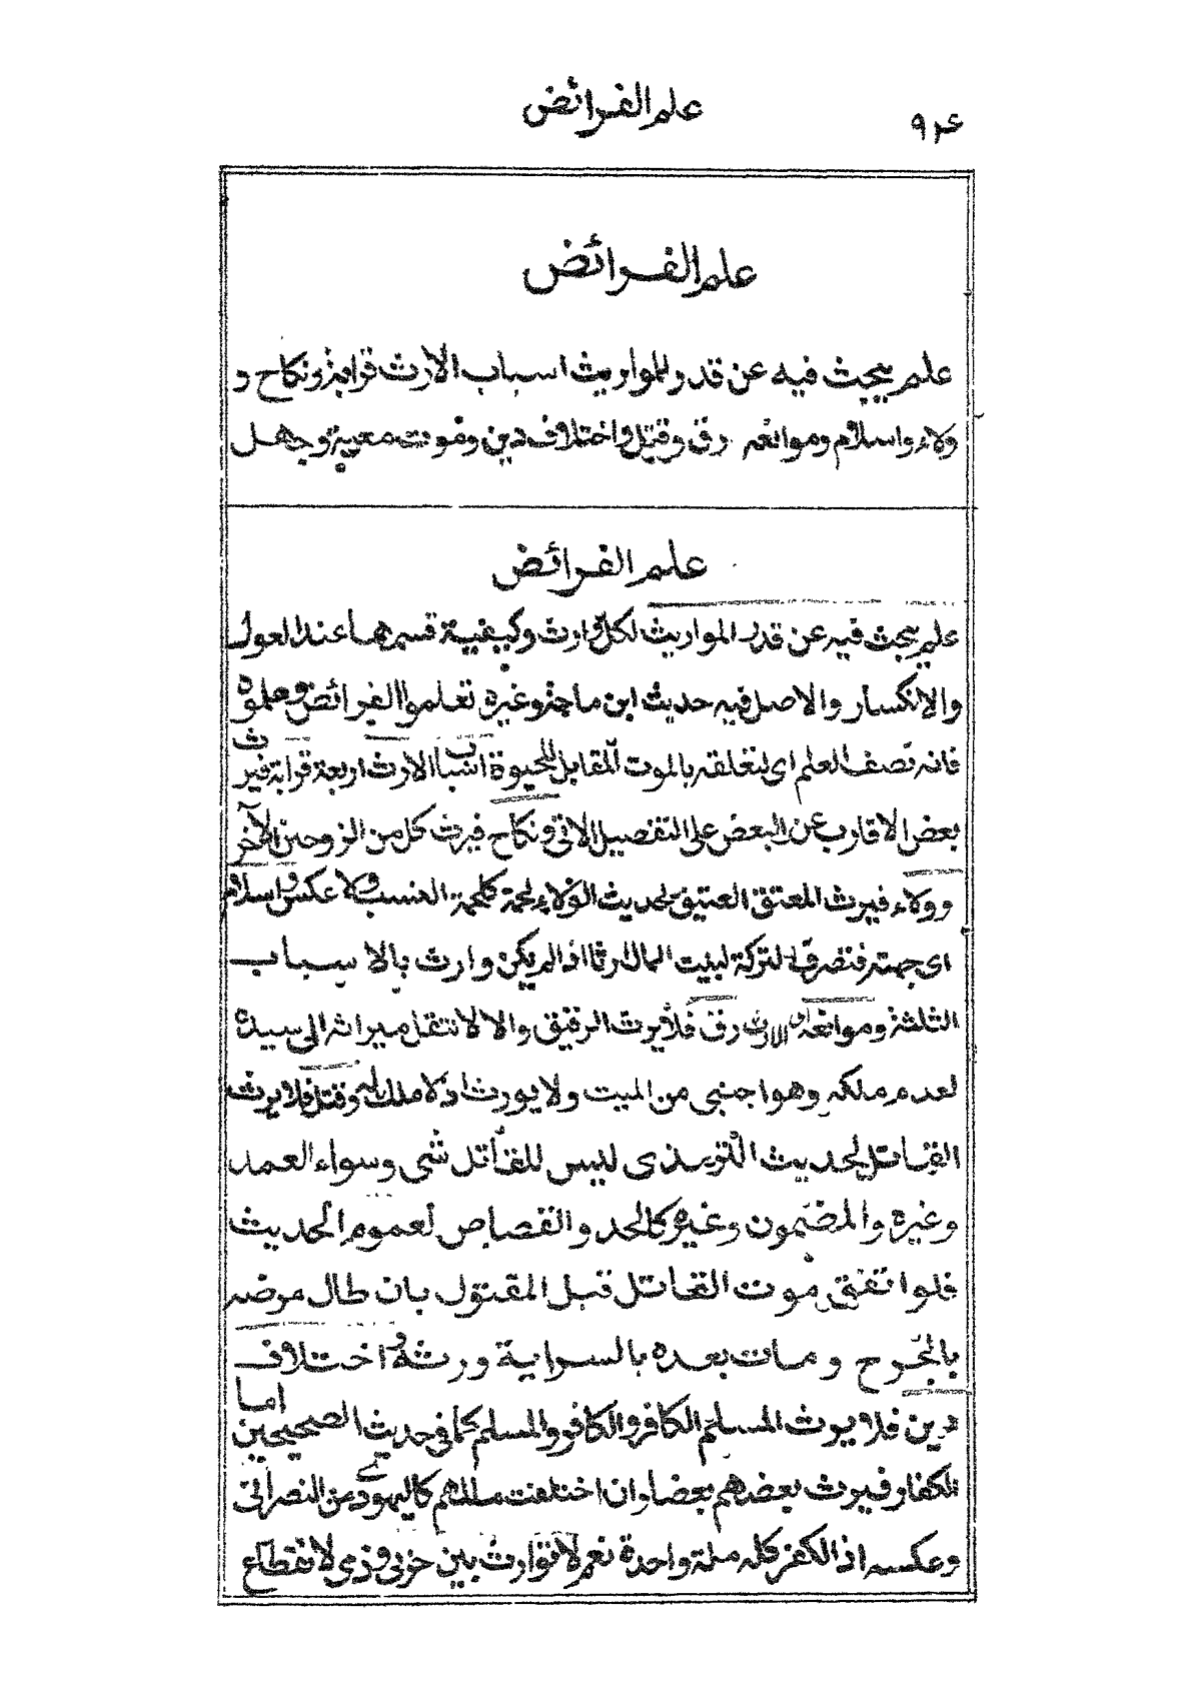 علم الفرائض
علم الفرائض
علم يبحث فيه عن قدر المواريث اسباب الارث قرابة ونكاح و
ولاء واسلام وموانعه رق وقتل واختلاف دين وموت معية وجهل
علم الفرائض
علم يبحث فيه عن قدر المواريث لكل وارث وكيفية قسمها عند العول
والانكسار والاصل فيه حديث ابن ماجة وغيره تعلموا الفرائض وعلموه
فانه نصف العلم اى لتعلقه بالموت المقابل للحيوة اسباب الارث اربعة قرابة فيرث
بعض الاقارب عن البعض على التفصيل الاتى ونكاح فيرث كل من الزوجين الآخر
وولاء فيرث المعتق العتيق لحديث الولاء لحمة كلحمة النسب ولا عكس واسلام
اى جهته فتصرف التركة لبيت المال ارثا اذا لم يكن وارث بالاسباب
الثلثة وموانعه اى الارث رق فلا يرث الرقيق والا لانتقل ميراثه الى سيده
لعدم ملكه وهو اجنبى من الميت ولا يورث اذ لا ملك له وقتل فلا يرث
القاتل لحديث الترمذى ليس للقاتل شى وسواء العمد
وغيره والمضمون وغيره كالحد والقصاص لعموم الحديث
فلو اتفق موت القاتل قبل المقتول بان طال مرضه
بالجرح ومات بعده بالسراية ورثه واختلاف
دين فلا يرث المسلم الكافر والكافر المسلم كما فى حديث الصحيحين اما
الكفار فيرث بعضهم بعضا وان اختلفت مللهم كاليهودى من النصرانى
وعكسه اذ الكفر كله ملة واحدة نعم لا توارث بين حربى وذمى لانقطاع